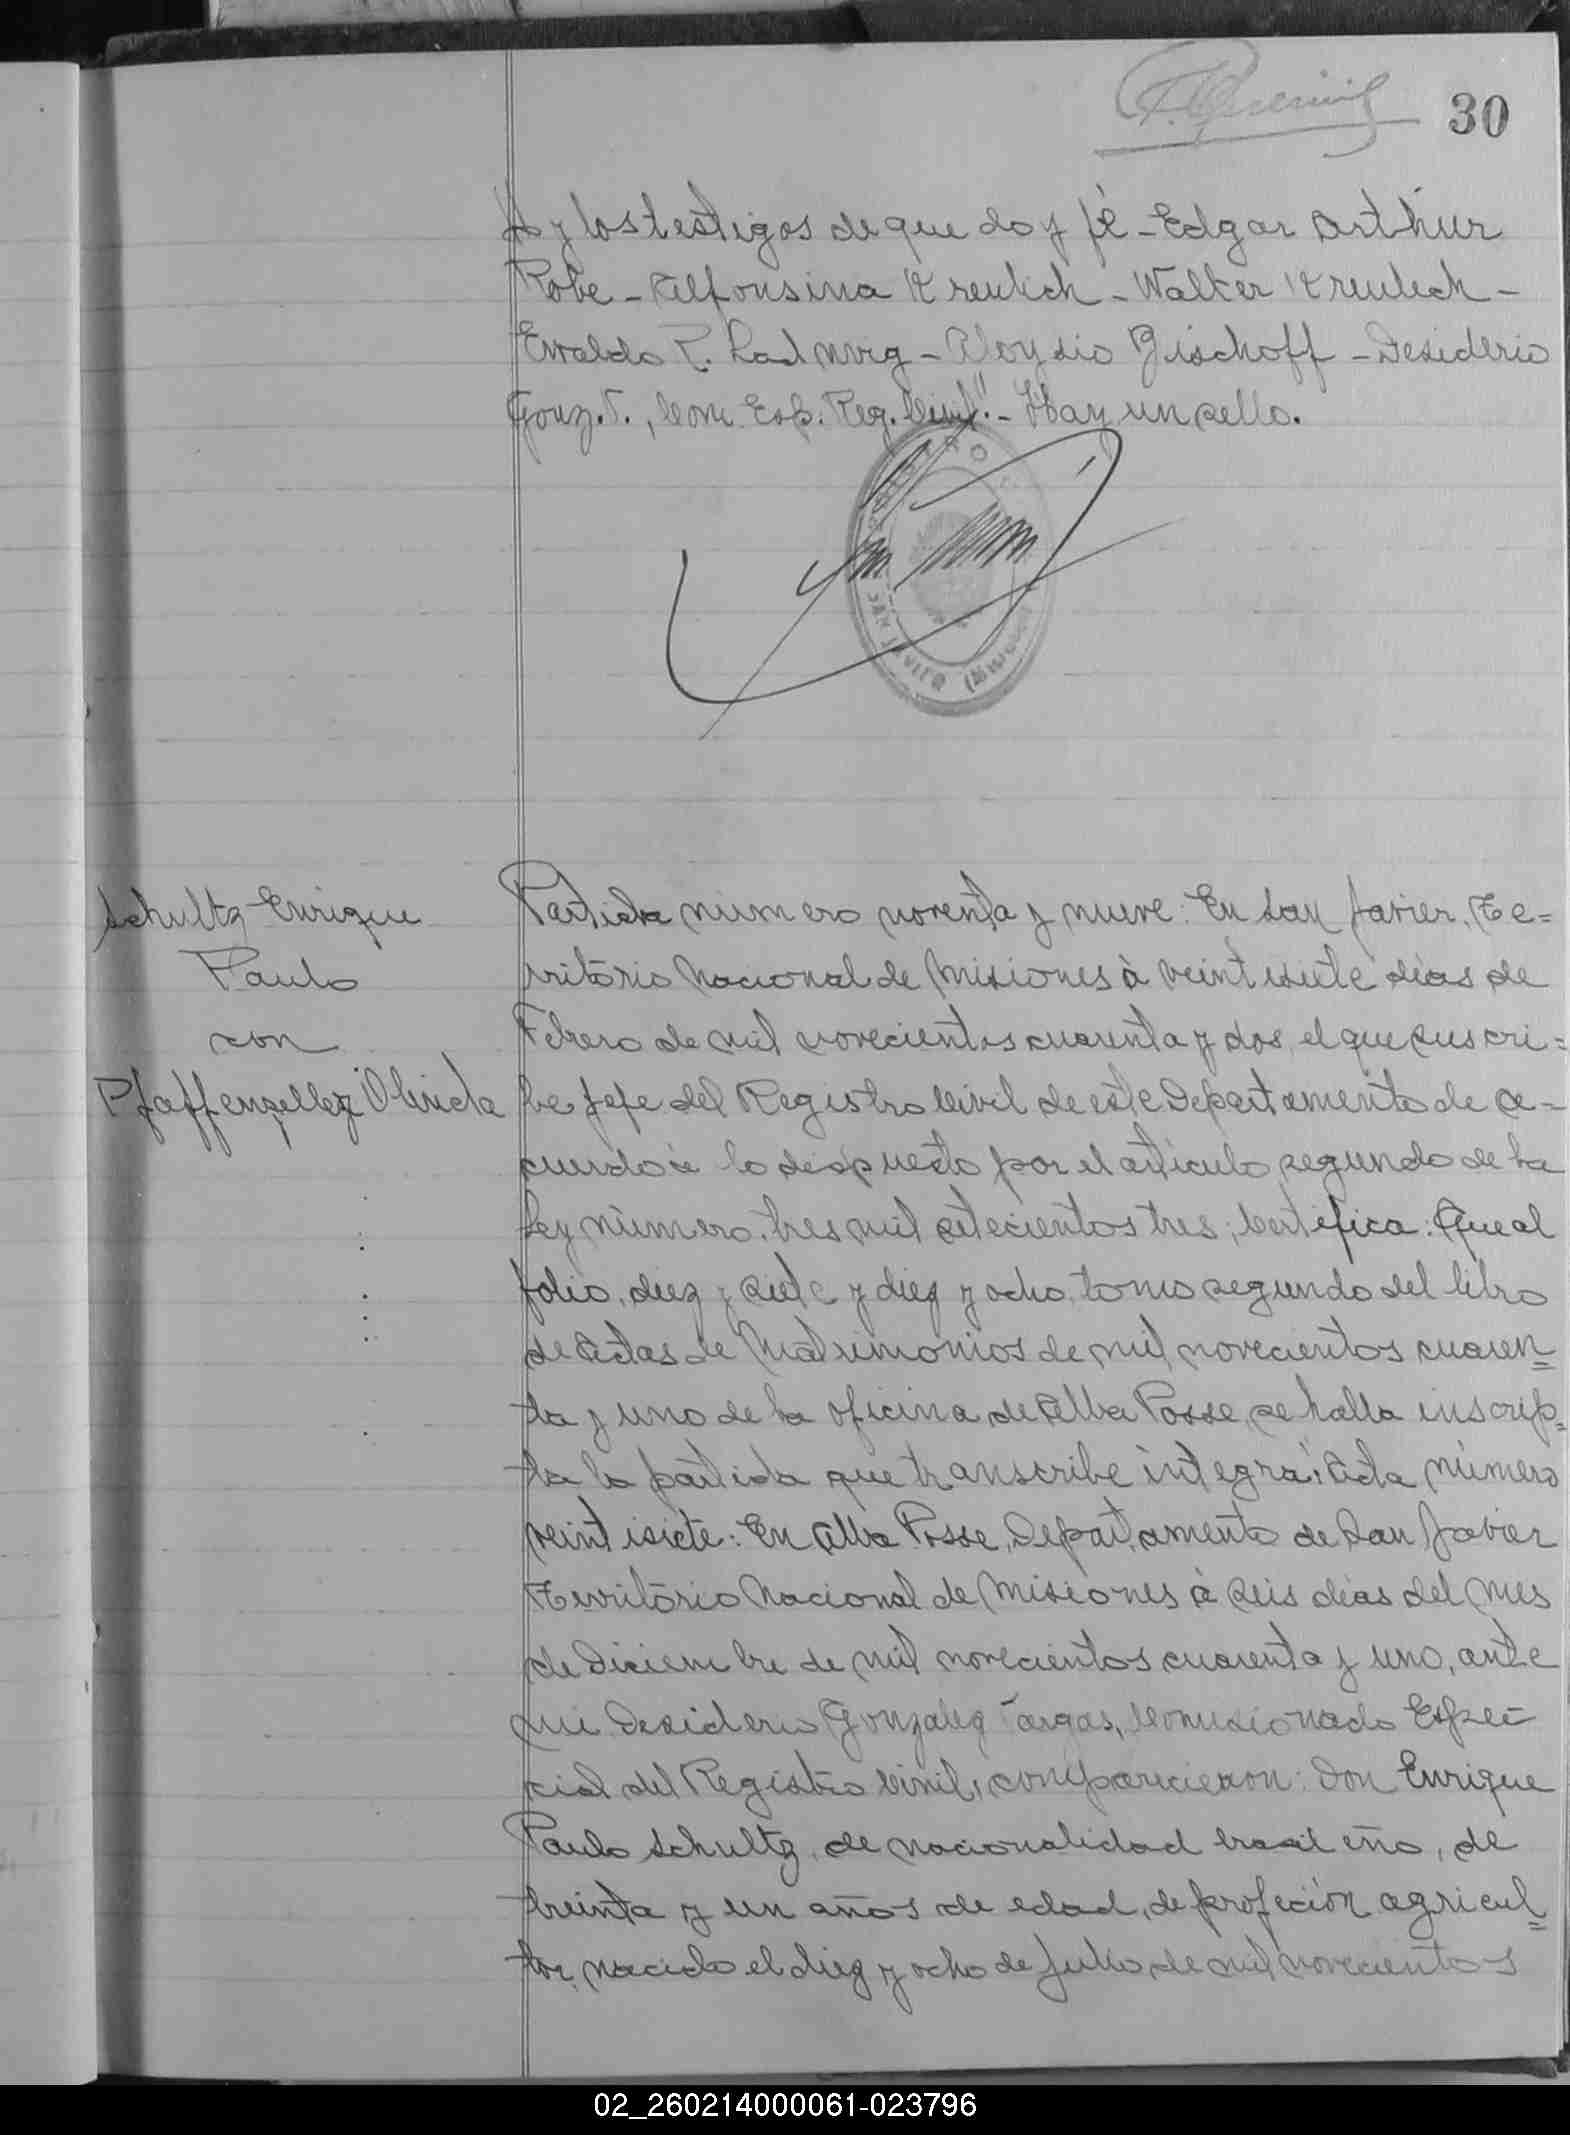 30
to y los testigos de que doy fé - Edgar Arthur
Robe - Alfonsina Kreulich - Walter Kreulich -
Ewaldo R. Ladwig - Aloysio Bischoff - Desiderio
Gonz. V., Com. Esp. Reg. Civil". - Hay un sello.
SAN JAVIER (MISIONES)
Schultz Enrique
Paulo
con
Pfaffenzeller Olinda
Partida número noventa y nueve: En San Javier, Te=
rritório Nacional de Misiones à veintisiete dias de
Febrero de mil novecientos cuarenta y dos, el que suscri=
be Jefe del Registro Civil de este Departamento de a=
cuerdo à lo dispuesto por el articulo segundo de la
Ley número tres mil setecientos tres; Certifica: Que al
folio, diez y siete y diez y ocho, tomo segundo del libro
de Actas de Matrimonios de mil novecientos cuaren=
ta y uno de la oficina de Alba Posse, se halla inscrip=
ta la partida que transcribe integra: Acta número
veintisiete: En Alba Posse, Departamento de San Javier
Território Nacional de Misiones à seis dias del mes
de Diciembre de mil novecientos cuarenta y uno, ante
mi Desiderio Gonzalez Vargas, Comisionado Espe=
cial del Registro Civil, comparecieron: Don Enrique
Paulo Schultz, de nacionalidad brasileño, de
treinta y un años de edad, de profeción agricul=
tor, nacido el diez y ocho de Julio de mil novecientos
02_260214000061-023796